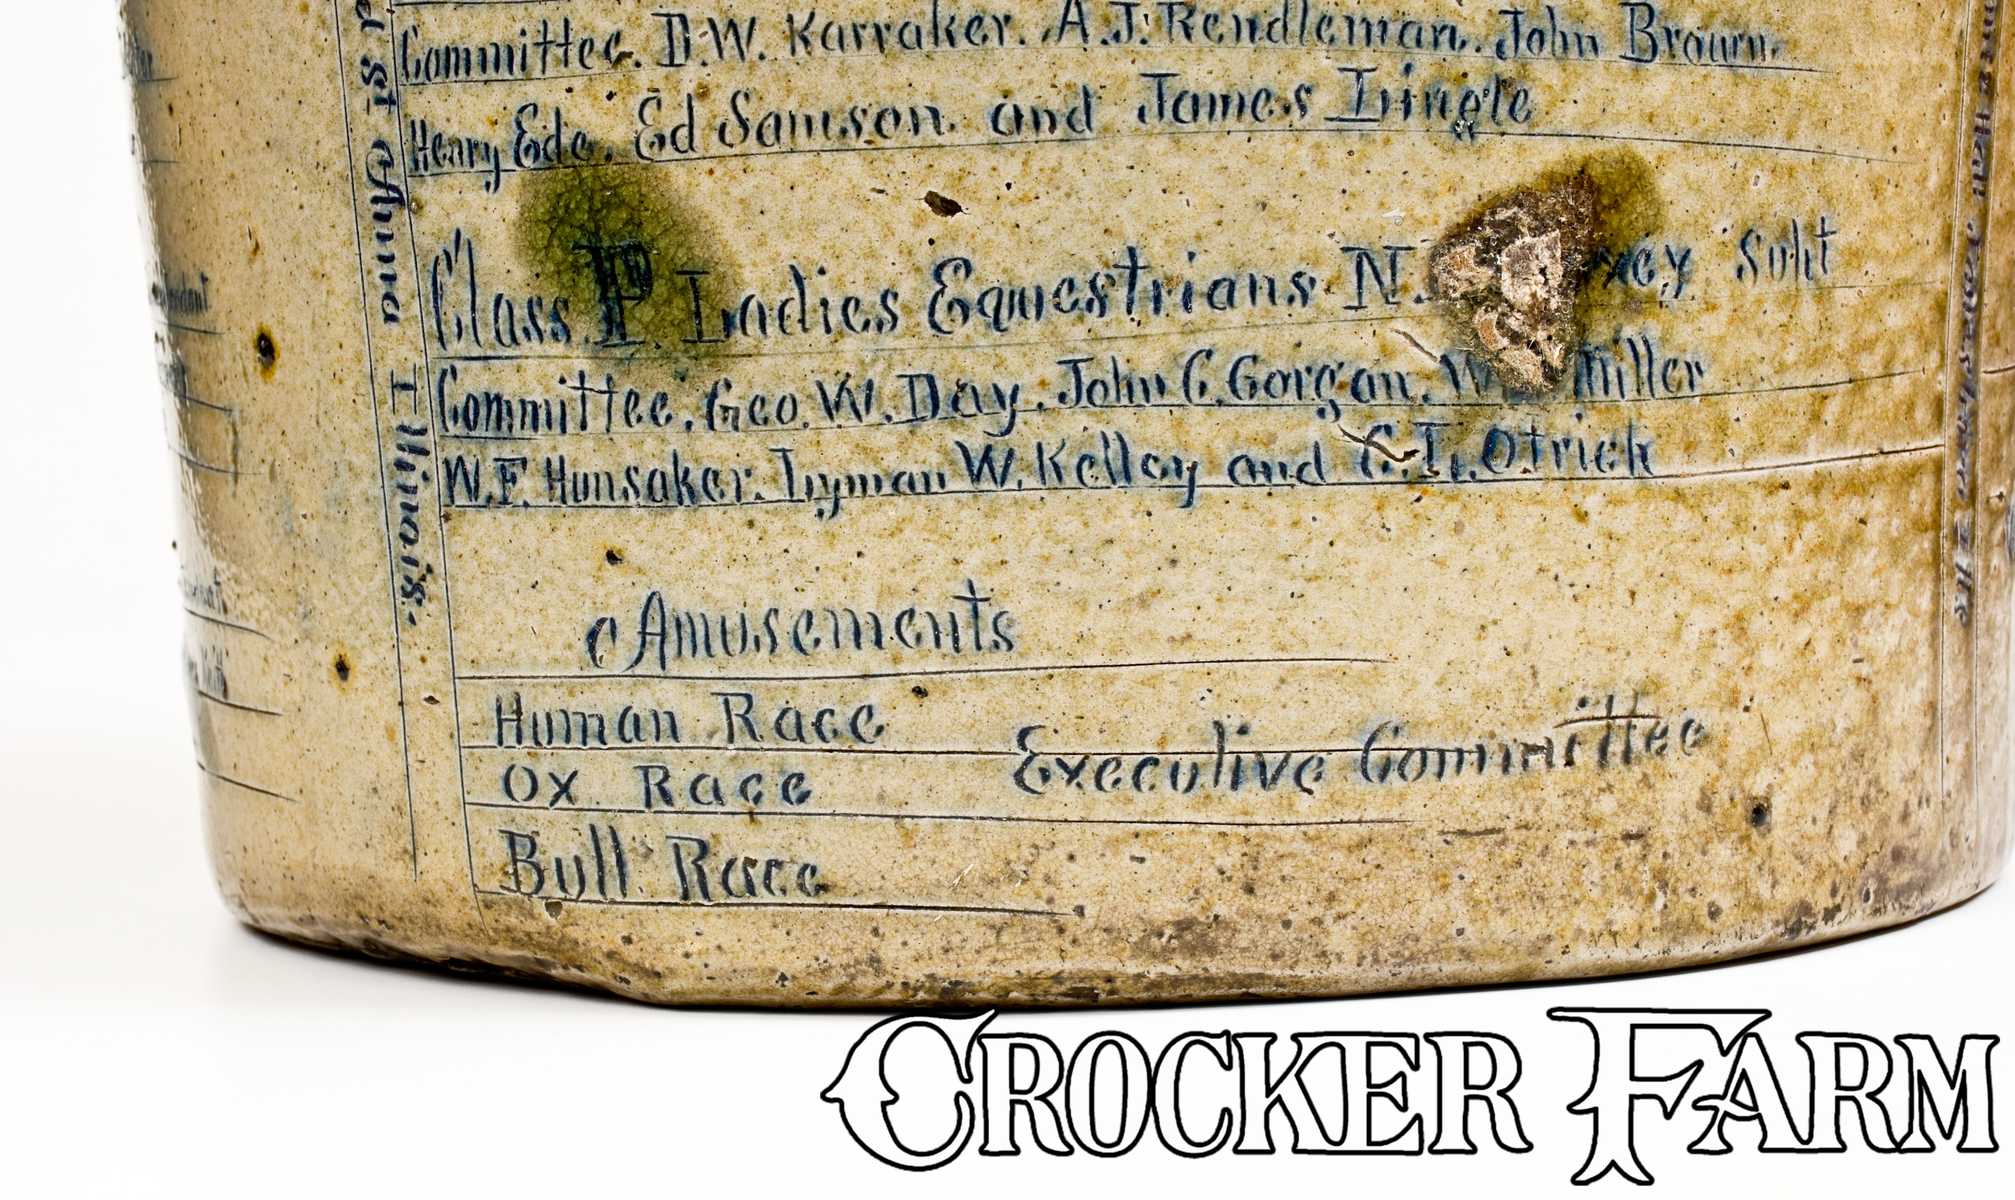 Committee. D.W. Karraker. A.J. Rendleman. John Brown.
Henry Ede. Ed Samson. and James Lingle
Class P. Ladies Equestrians N. Supt
Committee. Geo. W. Day. John C. Gorgan. W. Miller
W.F. Hunsaker. Lyman W. Kelley and C.L. Otrich
Amusements
Human Race
Executive Committee
Ox Race
Bull Race
st Anna Illinois.
CROCKER FARM